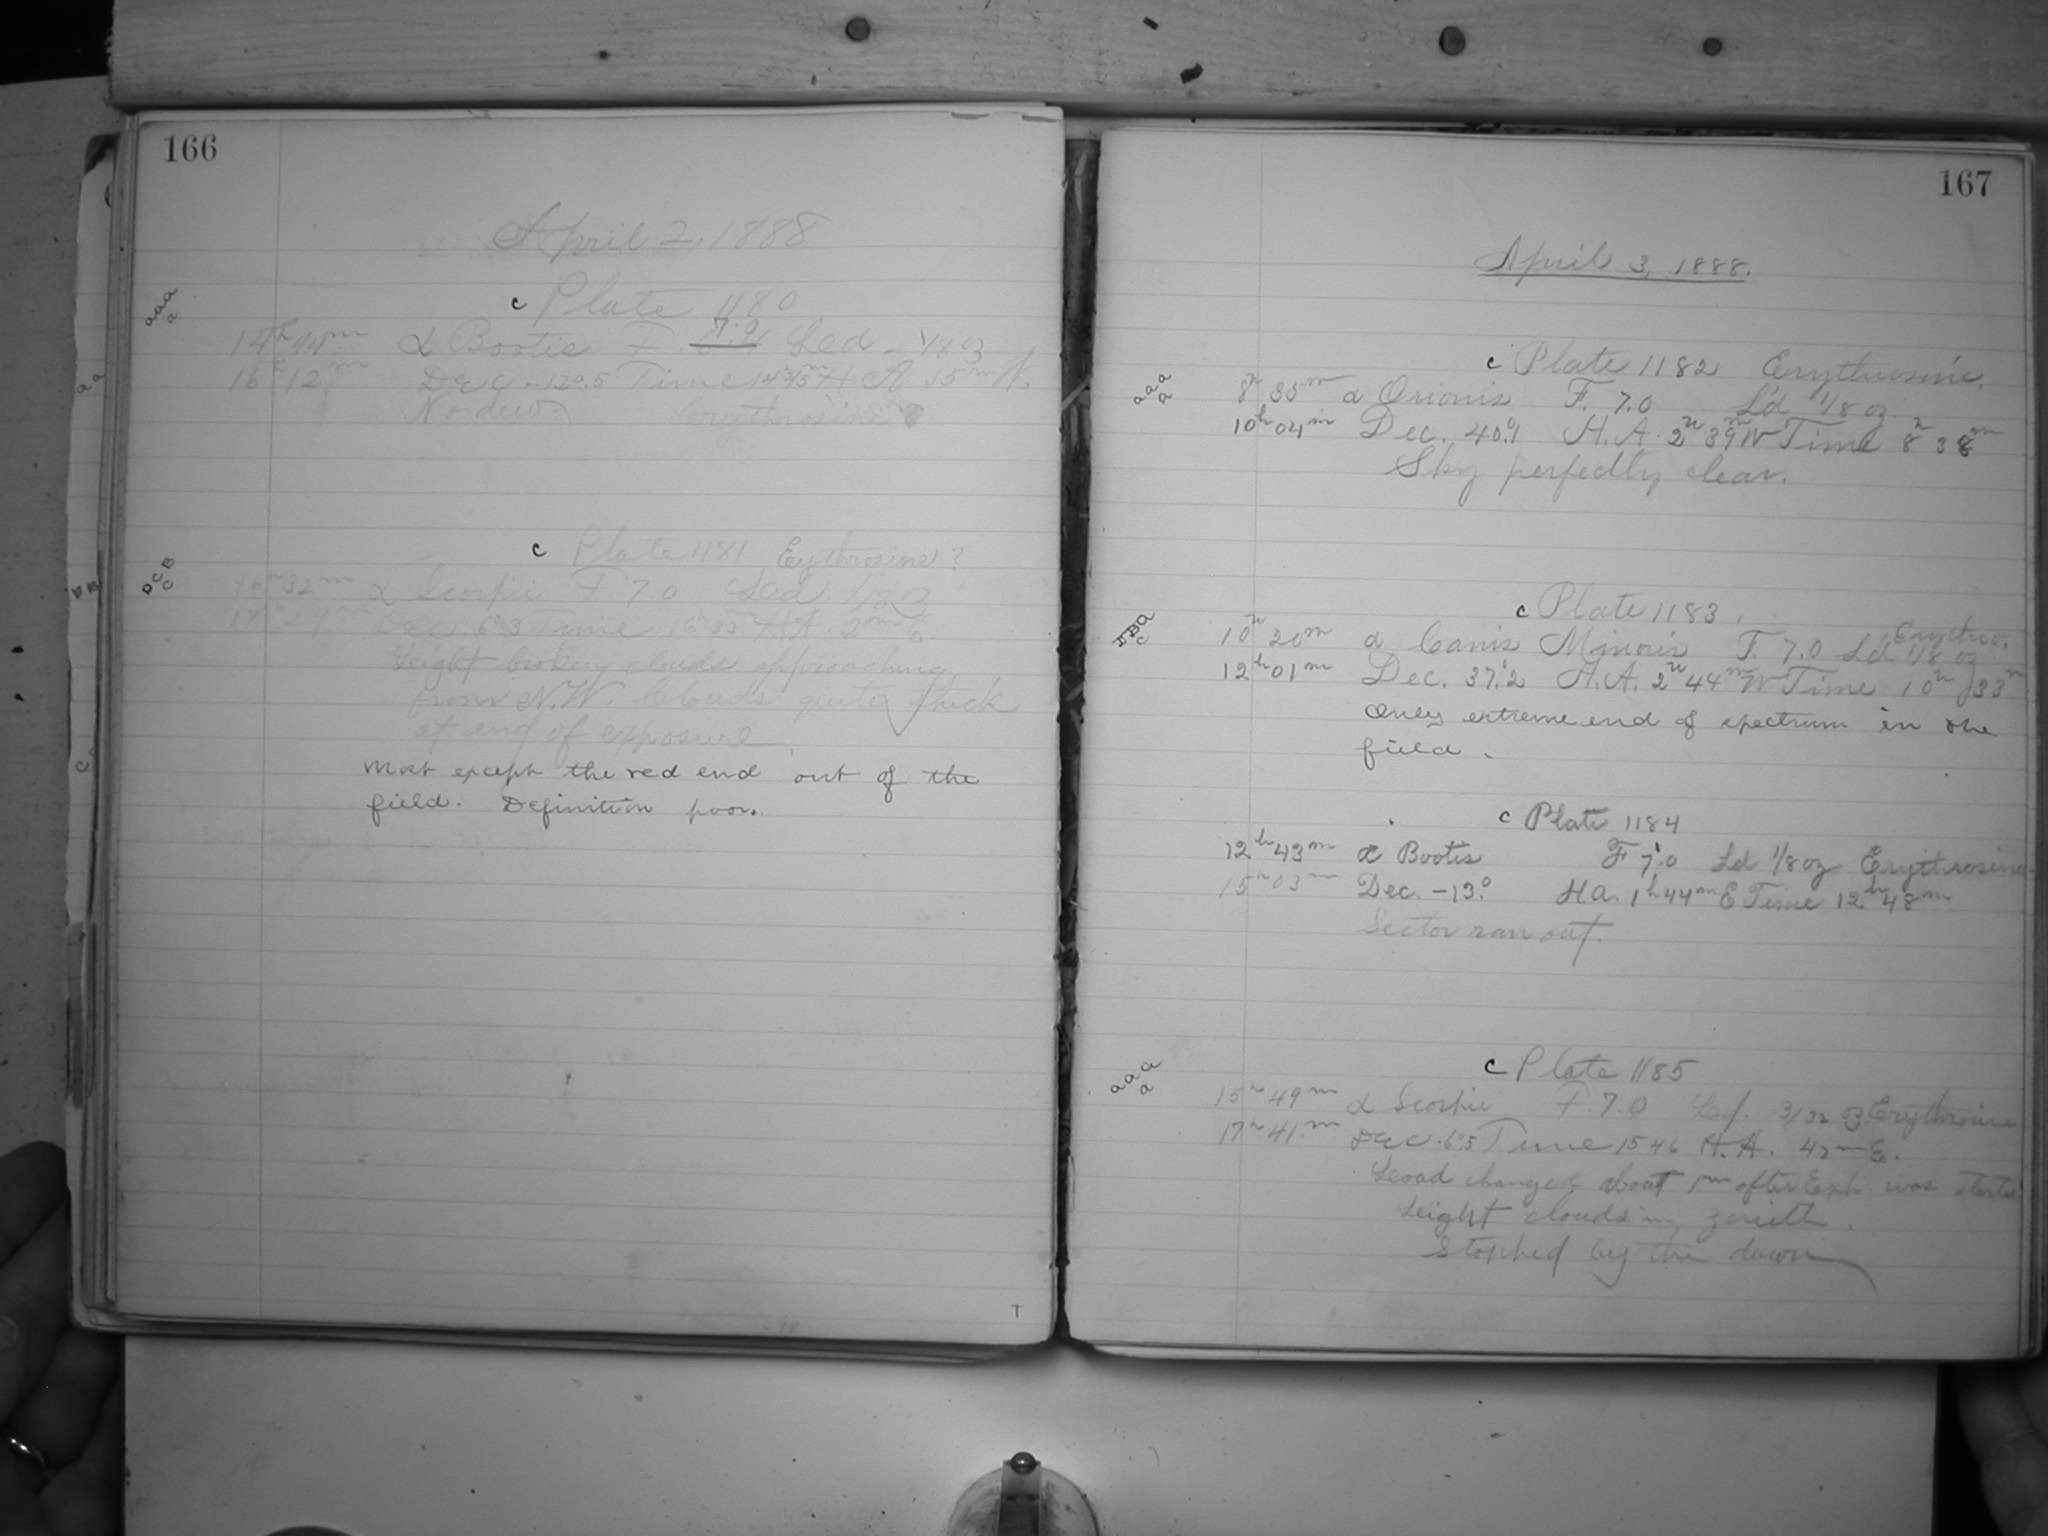 166
April 2, 1888
c Plate 1180
aaa
a
14h 44m α Bootis F. 7.0 Led - 1/8 oz
16h 12m Dec -12°.5 Time 14h45m H.A 15m W.
No dew. Erythrosine
c Plate 1181 Erythrosine?
DCB
C
16h 32m α Scorpii F 7.0 Led. 1/8 oz
Dec. 6°.3 Time 16h 33m H.A. 2m E.
Leight broken clouds approaching
from N.W. Clouds quite thick
at end of exposure
most except the red end out of the
field. Definition poor.
T
167
April 3, 1888.
c Plate 1182 Erythrosine.
aaa
a
8h 35m α Orionis F. 7.0 L'd 1/8 oz
10h 04m Dec. 40.°1 H.A. 2h 39m W Time 8h 38m
Sky perfectly clear.
c Plate 1183.
Ba
C
Erythro.
10h 20m α Canis Minoris F. 7.0 Ld 1/8 oz
12h 01m Dec. 37.°2 H.A. 2h 44m W Time 10h 33m
Only extreme end of spectrum in the
field.
c Plate 1184
12h 43m α Bootis F 7.0 Ld 1/8 oz Erythrosine
15h 03m Dec. -13.° HA. 1h 44m E Time 12h 48m
Sector ran out.
c Plate 1185
aaa
a
15h 49m α Scorpii F. 7.0 Ld. 3/32 oz. Erythrosine
17h 41m Dec. 6°.5 Time 15 46 H.A. 47m E.
Load changed about 1m after Exp. was started
Leight clouds in zenith.
Stopped by the dawn